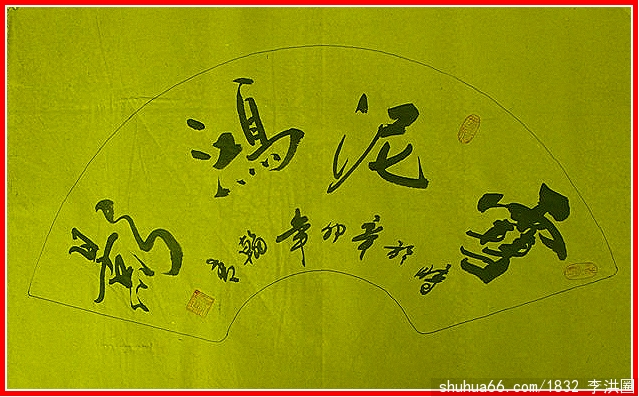 雪泥鴻影
書於辛卯年翰
shuhua66.com/1832 李洪圖